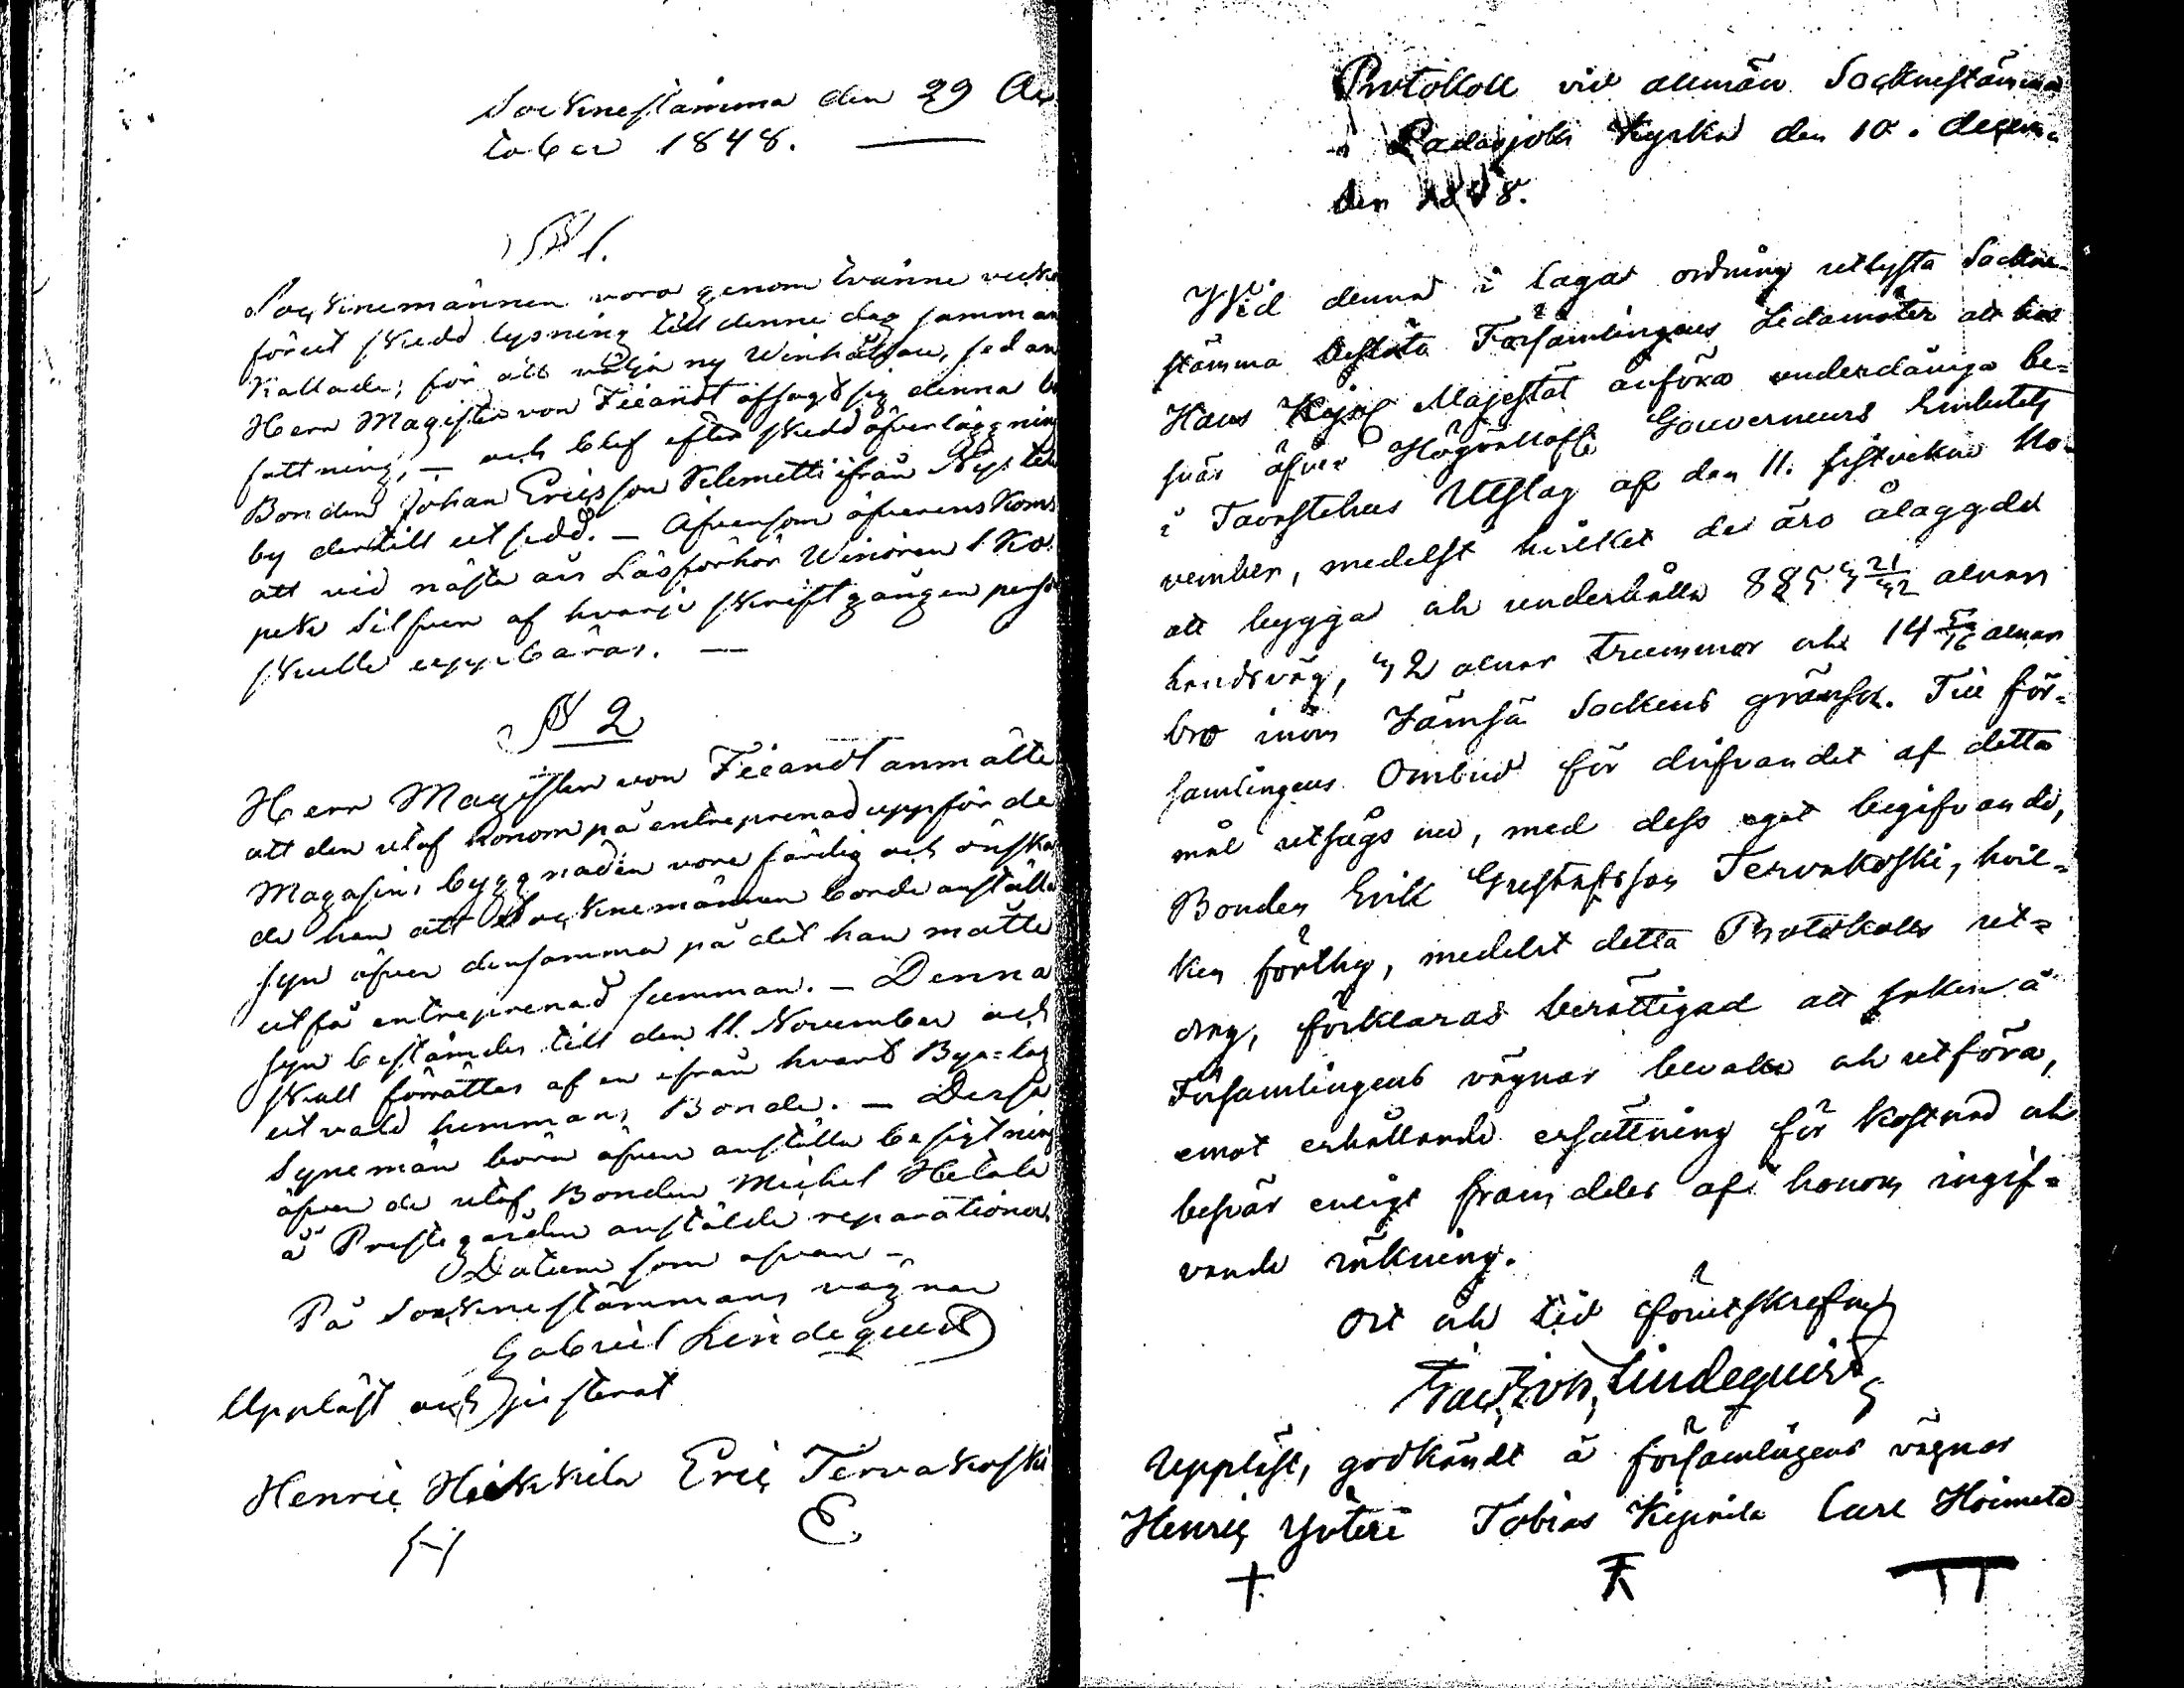 Socknestämma den 29 Oc
tober 1848.
§ 1.
Socknemännen voro genom tvänne vecko
förut skedd lysning till denne dag samman
kallade, för att välja ny Winhållare, sedan
Herr Magister von Fieandt afsagt sig denna be
fattning, – och blef efter skedd öfverläggning
Bonden Johan Ericsson Klemetti ifrån Nystölä
by dertill utsedd. – Äfvensom öfverenskoms
att vid nästa års Läsförhör Winören 1 Ko
pek Silfver af hvarje skriftgången perso
skulle uppbäras. —
§ 2
Herr Magister von Fieandt anmälte
att den utaf honom på entreprenad uppförde
Magasins byggnaden vore färdig och önska
de han att Socknemännen borde anställa
syn öfver densamma på det han måtte
utfå entreprenad summan. – Denna
syn bestämdes till den 11. November och
skall förrättas af en ifrån hvart Bya-lag
utvald hemmans Bonde. – Desse
Synemän böra äfven anställa besigtning
öfver de utaf Bonden Michel Hetala
å Prestegården anstälde reparationer
Datum som ofvan –
På Sockne stämmans vägnar
Gabriel Lindequist
Uppläst och justerat
Henric Heikkilä Eric Tervakoski
H E
Protokoll vid allmän Socknestämma
i Padasjoki Kyrka den 10. decem-
ber 1848.
Wid denna i lagar ordning utlysta Sockne-
stämma beslöto Församlingens Ledamöter att hos
Hans Kejs Majestät anföra underdåniga be-
svär öfver Gouverneurs Embetets
i Tavastehus Utslag af den 11. sistvekne No-
vember, medelst hvilket de äro ålaggde
att bygga och underhålla alnar
landsväg, 42 alnar trummor och 14 5/16 alnar
bro inom Jämsä Sockens gränser. Till för-
samlingens Ombud för drifvandet af detta
mål utsågs nu, med dess eget begifvande,
Bonden Erik Gustafsson Tervakoski, hvil-
ken förthy, medelst detta Protokolls ut-
drag, förklaras berättigad att saken å
Församlingens vägnar bevaka och utföra,
emot erhållande ersättning för kostnad och
besvär enligt framdeles af honom ingif-
vande räkning.
Ort och tid förutskrefne
Lindequist
Uppläst, godkändt å församlingens vägnar
Henric Yöteri Tobias Carl Hoimela
+ TT